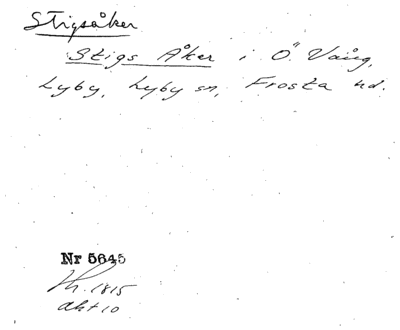 Stigsåker
Stigs Åker i Ö. Vång,
Lyby, Lyby sn, Frosta hd.
Nr 5645
Lh. 1815
akt 10